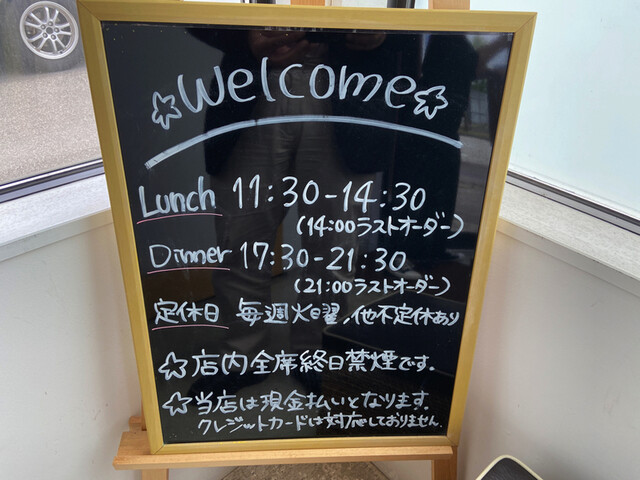 Welcome
Lunch 11:30-14:30
(14:00ラストオーダー)
Dinner 17:30-21:30
(21:00ラストオーダー)
定休日 毎週火曜、他不定休あり
☆店内全席終日禁煙です.
☆当店は現金払いとなります.
クレジットカードは対応しておりません.